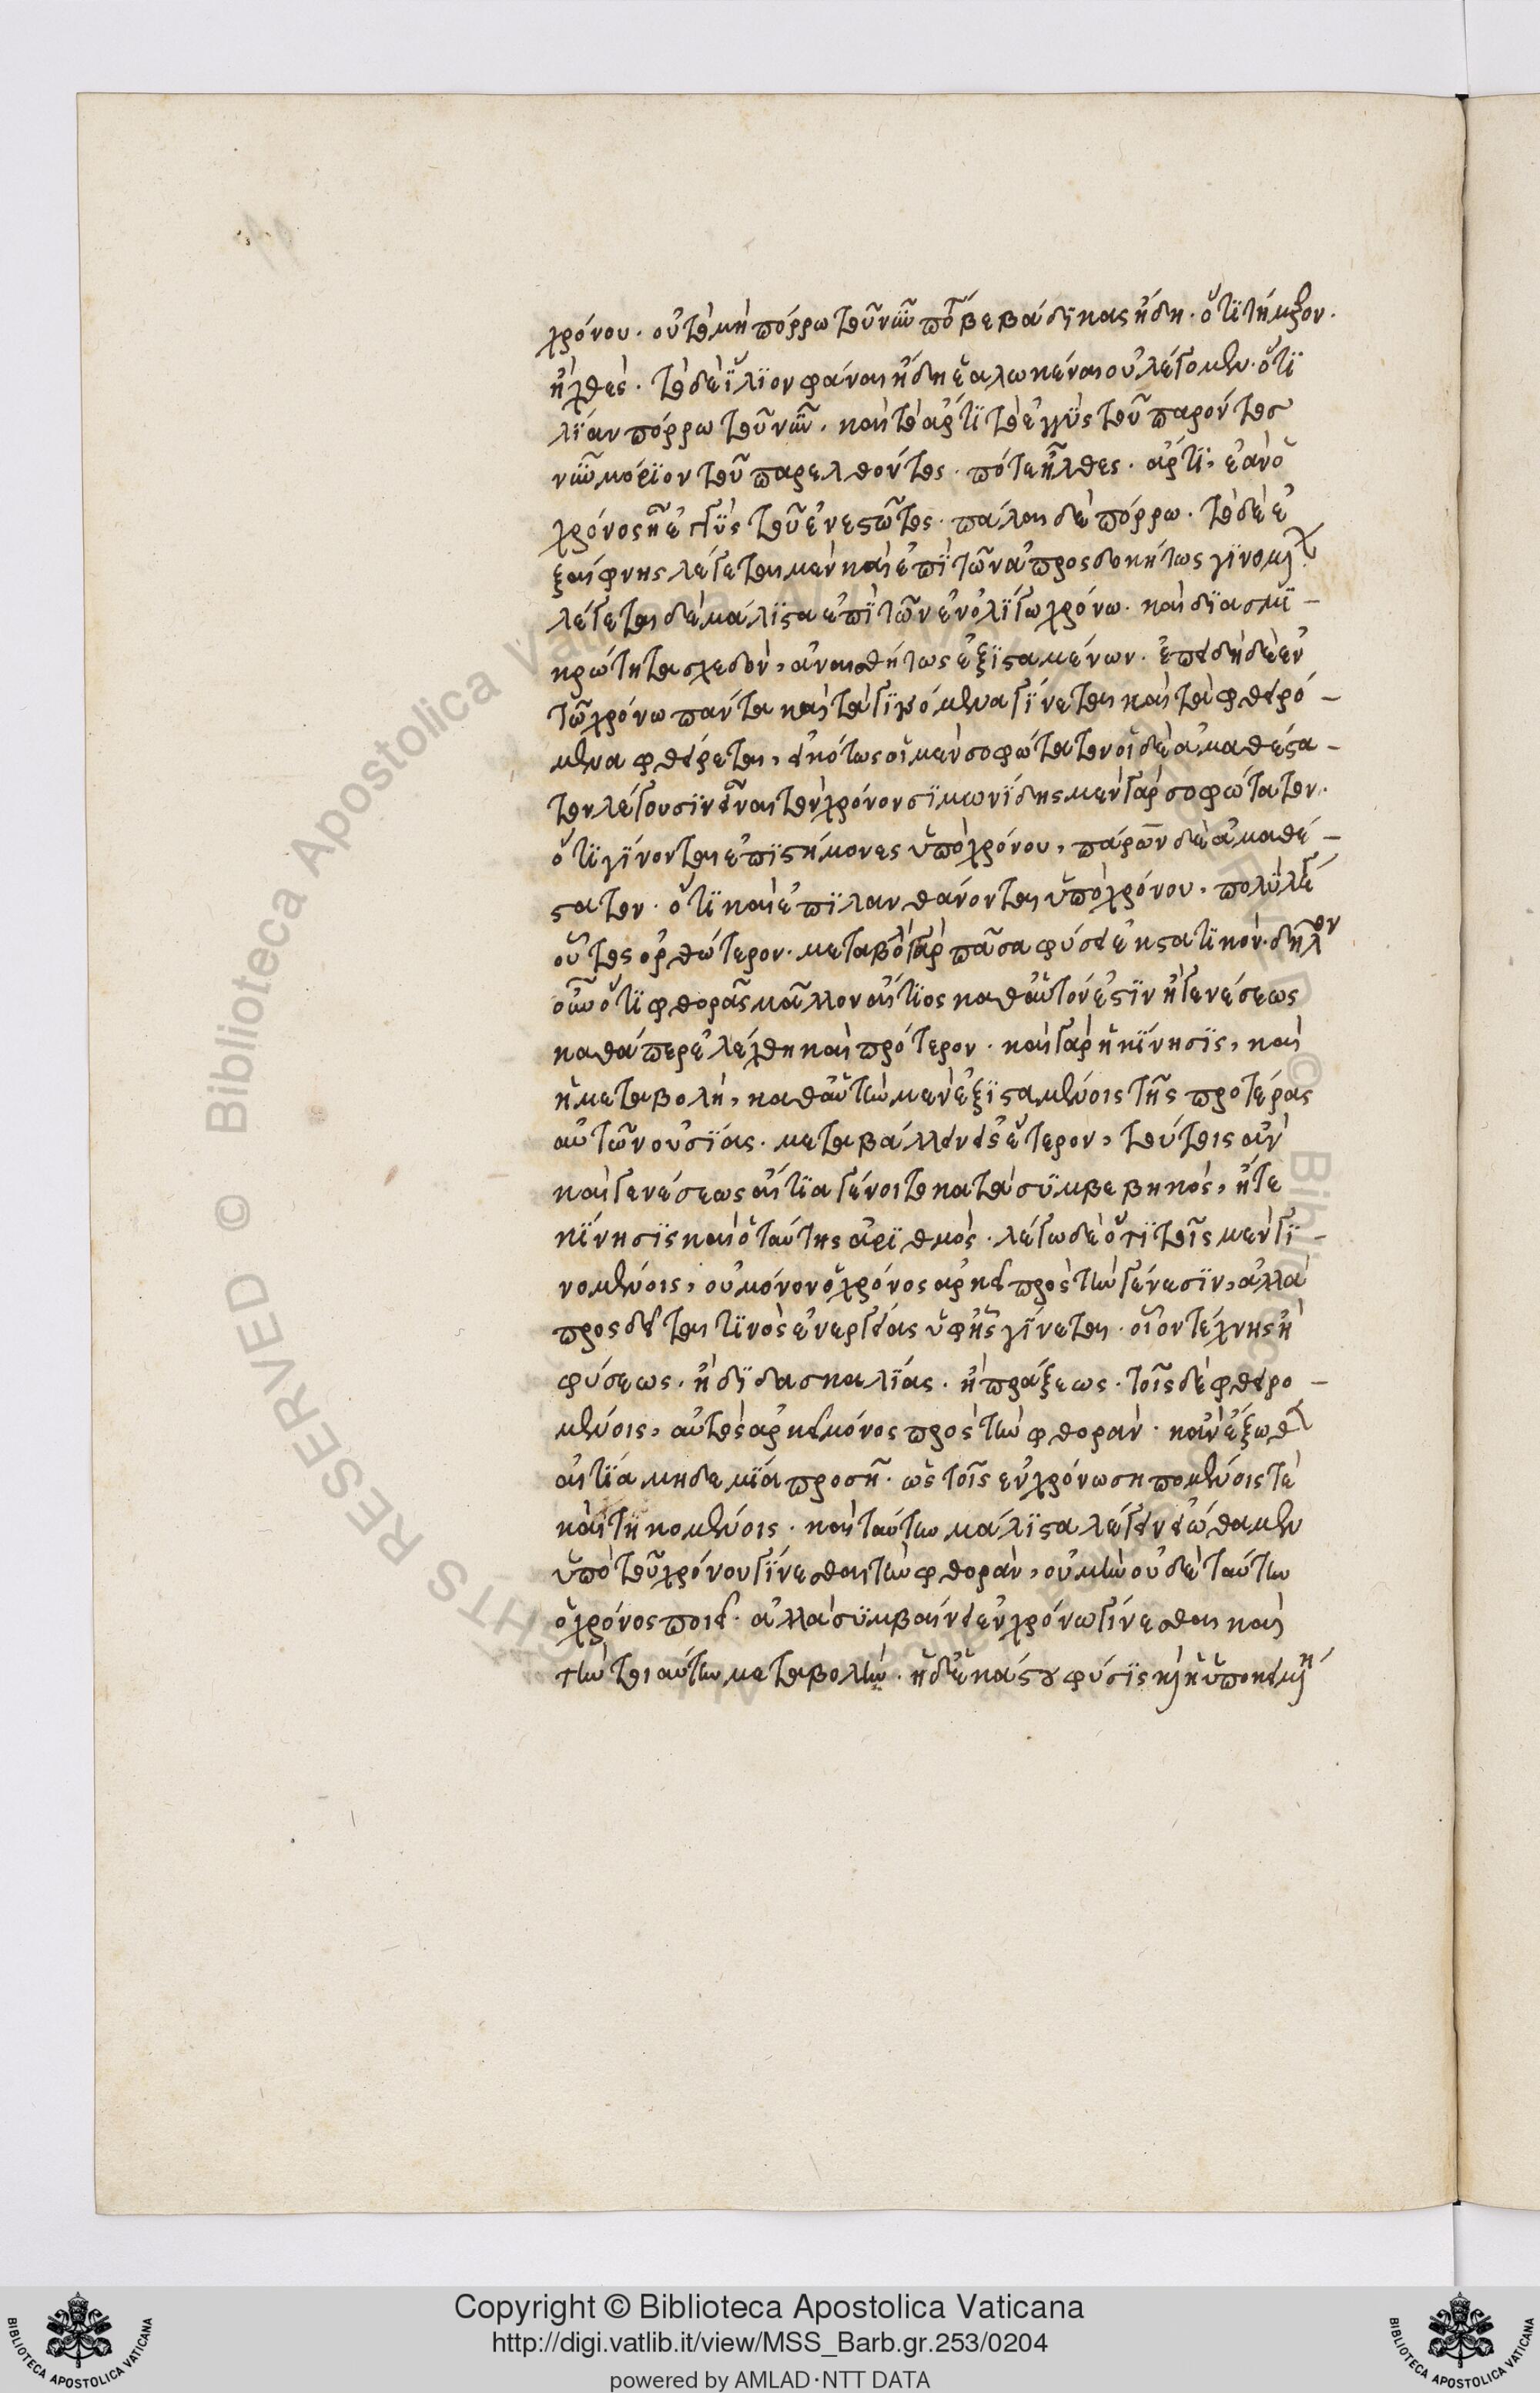 χρόνου. οὐ τὸ μὴ πόρρω τοῦ νῦν ποῦ βεβάδϊκας ἤδη. ὅτϊ τήμερον.
ἦλθες. τὸ δὲ ἴλϊον φάναι ἤδη ἑαλωκέναι οὐ λέγομεν. ὅτϊ
λΐαν πόρρω τοῦ νῦν. καὶ τὸ ἄρτϊ τὸ ἐγγὺς τοῦ παρόντος
νῦν μόριον τοῦ παρελθόντος. πότε ἦλθες. ἄρτϊ. ἐὰν ὁ
χρόνος ἦ ἐγγὺς τοῦ ἐνεστῶτος. πάλαι δὲ πόρρω. τὸ δὲ ἐ
ξαίφνης λέγεται μὲν καὶ ἐπὶ τῶν ἀπροσδοκήτως γϊνομ
λέγεται δὲ μάλϊστα ἐπὶ τῶν ἐν ὀλΐγω χρόνω. καὶ δϊα σμϊ-
κρότητα σχεδὸν, ἀναισθήτως ἐξϊσταμένων. ἐπειδὴ δὲ ἐν
τῶ χρόνω πάντα καὶ τὰ γϊνόμενα γΐνεται καὶ τὰ φθειρό-
μενα φθείρεται, εἰκότως οἱ μὲν σοφώτατον οἱ δὲ ἀμαθέστα-
τον λέγουσϊν εἶναι τὸν χρόνον σϊμωνΐδης μὲν γὰρ σοφώτατον.
ὅτϊ γΐνονται ἐπϊστήμονες ὑπὸ χρόνου, πάρων δὲ ἀμαθέ-
στατον. ὅτϊ καὶ ἐπϊλανθάνονται ὑπὸ χρόνου. πολὺ λέγ
οὗτος ὀρθώτερον. μεταβολ γὰρ πᾶσα φύσει ἐκστατϊκὸν. δῆλον
οὖν ὅτϊ φθορᾶς μᾶλλον αἴτϊος καθ' αὑτόν ἐστϊν ἢ γενέσεως
καθάπερ ἐλέχθη καὶ πρότερον. καὶ γὰρ ἡ κΐνησϊς, καὶ
ἡ μεταβολὴ, καθ' αὑτὴν μὲν ἐξϊσταμένοις τῆς προτέρας
αὐτῶν οὐσΐας. μεταβάλλειν εἰς ἕτερον, τούτοις ἂν
καὶ γενέσεως αἰτΐα γένοιτο κατὰ συμβεβηκὸς, ἥ τε
κΐνησϊς καὶ ὁ ταύτης ἀρϊθμὸς. λέγω δὲ ὅτϊ τοῖς μὲν γϊ-
νομένοις, οὐ μόνον ὁ χρόνος ἀρκεῖ πρὸς τὴν γένεσϊν, ἀλλὰ
προσδεῖται τϊνὸς ἐνεργείας ὑφ' ἧς γΐνεται. οἷον τέχνης ἢ
φύσεως. ἢ δϊδασκαλΐας. ἢ πράξεως. τοῖς δὲ φθειρο-
μένοις, αὐτὸς ἀρκεῖ μόνος πρὸς τὴν φθορὰν. κἂν ἔξωθ
αἰτΐα μηδεμΐα προσῆ. ὡς τοῖς ἐν χρόνω σηπομένοις τὲ
καὶ τηκομένοις. καὶ ταύτην μάλϊστα λέγειν εἰώθαμεν
ὑπὸ τοῦ χρόνου γΐνεσθαι τὴν φθορὰν, οὐ μὴν οὐδὲ ταύτην
ὁ χρόνος ποιεῖ. ἀλλὰ συμβαίνει ἐν χρόνω γΐνεσθαι καὶ
τὴν τοιαύτην μεταβολὴν. ἡ δὲ ἑκάστου φύσϊς καὶ ἡ ὑποκειμ
Copyright © Biblioteca Apostolica Vaticana
http://digi.vatlib.it/view/MSS_Barb.gr.253/0204
powered by AMLAD·NTT DATA